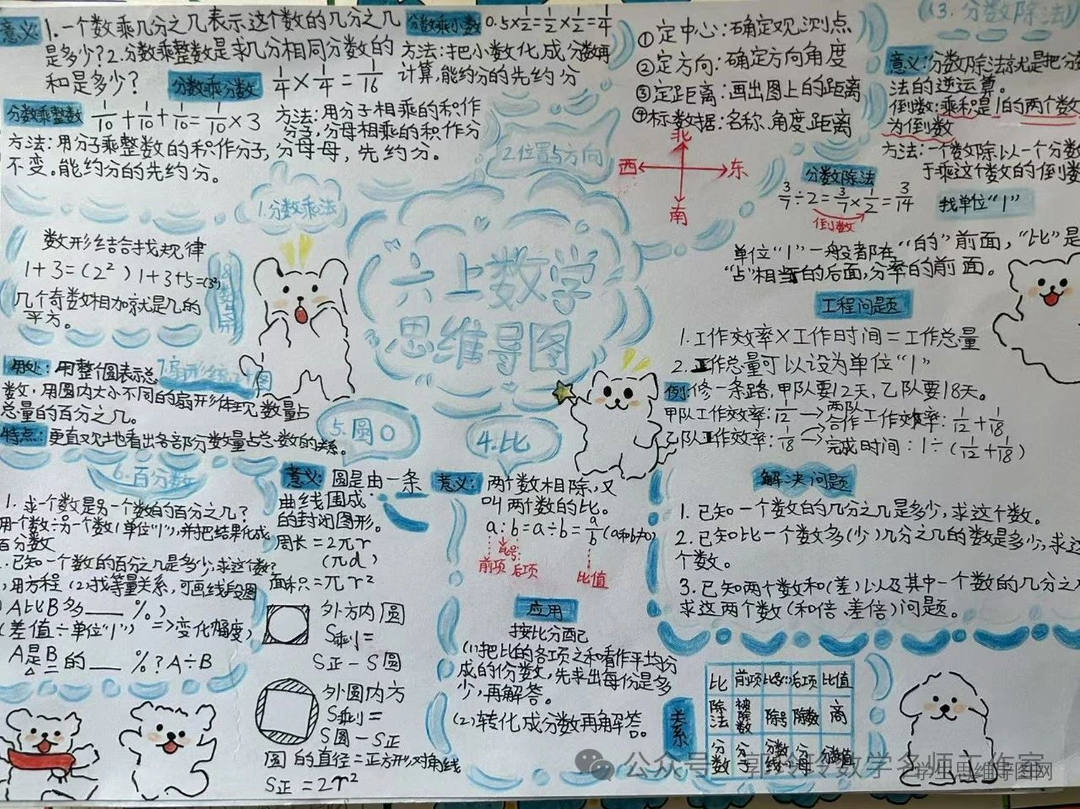 六上数学
思维导图
1.分数乘法
意义:1.一个数乘几分之几表示这个数的几分之几
是多少?2.分数乘整数是求几分相同分数的
和是多少?
分数乘分数
1/4×1/4=1/16
分数乘小数 0.5×1/2=1/2×1/2=1/4
方法:把小数化成分数再
计算,能约分的先约分
分数乘整数 1/10+1/10+1/10=1/10×3
方法:用分子乘整数的积作分子,分母母,先约分。
不变。能约分的先约分。
方法:用分子相乘的积作
分子,分母相乘的积作分
2.位置与方向
①定中心:确定观测点
②定方向:确定方向角度
③定距离:画出图上的距离
④标数据:名称、角度、距离
北
西
东
南
(3.分数除法)
意义:分数除法就是把分
法的逆运算。
倒数:乘积是1的两个数
为倒数
方法:一个数除以一个分数
于乘这个数的倒数
分数除法
3/7÷2=3/7×1/2=3/14
倒数
找单位“1”
单位“1”一般都在“的”前面,“比”是
“占”相当的后面,分率的前面。
工程问题
1.工作效率×工作时间=工作总量
2.工作总量可以设为单位“1”
例:修一条路,甲队要12天,乙队要18天。
甲队工作效率:1/12→两队合作工作效率:1/12+1/18
乙队工作效率:1/18→完成时间:1÷(1/12+1/18)
解决问题
1.已知一个数的几分之几是多少,求这个数。
2.已知比一个数多(少)几分之几的数是多少,求这
个数。
3.已知两个数和(差)以及其中一个数的几分之
求这两个数(和倍、差倍)问题。
数形结合找规律
1+3=(2²) 1+3+5=(3²)
几个奇数相加就是几的
平方。
8.数与形
用处:用整个圆表示总
数,用圆内大小不同的扇形体现数量占
总量的百分之几。
特点:更直观地看出各部分数量占总数的关系。
6.百分数
1.求一个数是另一个数的百分之几?
用个数÷另个数(单位“1”),并把结果化成
百分数
.已知一个数的百分之几是多少,求这个数?
)用方程 (2)找等量关系,可画线段图
A比B多___%?
(差值÷单位“1”)=>变化幅度)
A是B的___%?A÷B
5.圆
意义:圆是由一条
曲线围成
的封闭图形。
周长=2πr
(πd)
面积=πr²
外方内圆
S剩=
S正-S圆
外圆内方
S剩=
S圆-S正
圆的直径=正方形对角线
S正=2r²
4.比
意义:两个数相除,又
叫两个数的比。
a:b=a÷b=a/b
前项
比号
后项
比值
应用
按比分配
(1)把比的各项之和看作平均分
成的份数,先求出每份是多
少,再解答。
(2)转化成分数再解答。
关系
比 前项 比号(:) 后项 比值
除法 被除数 除号 除数 商
分数 分子 分数线 分母 分数值